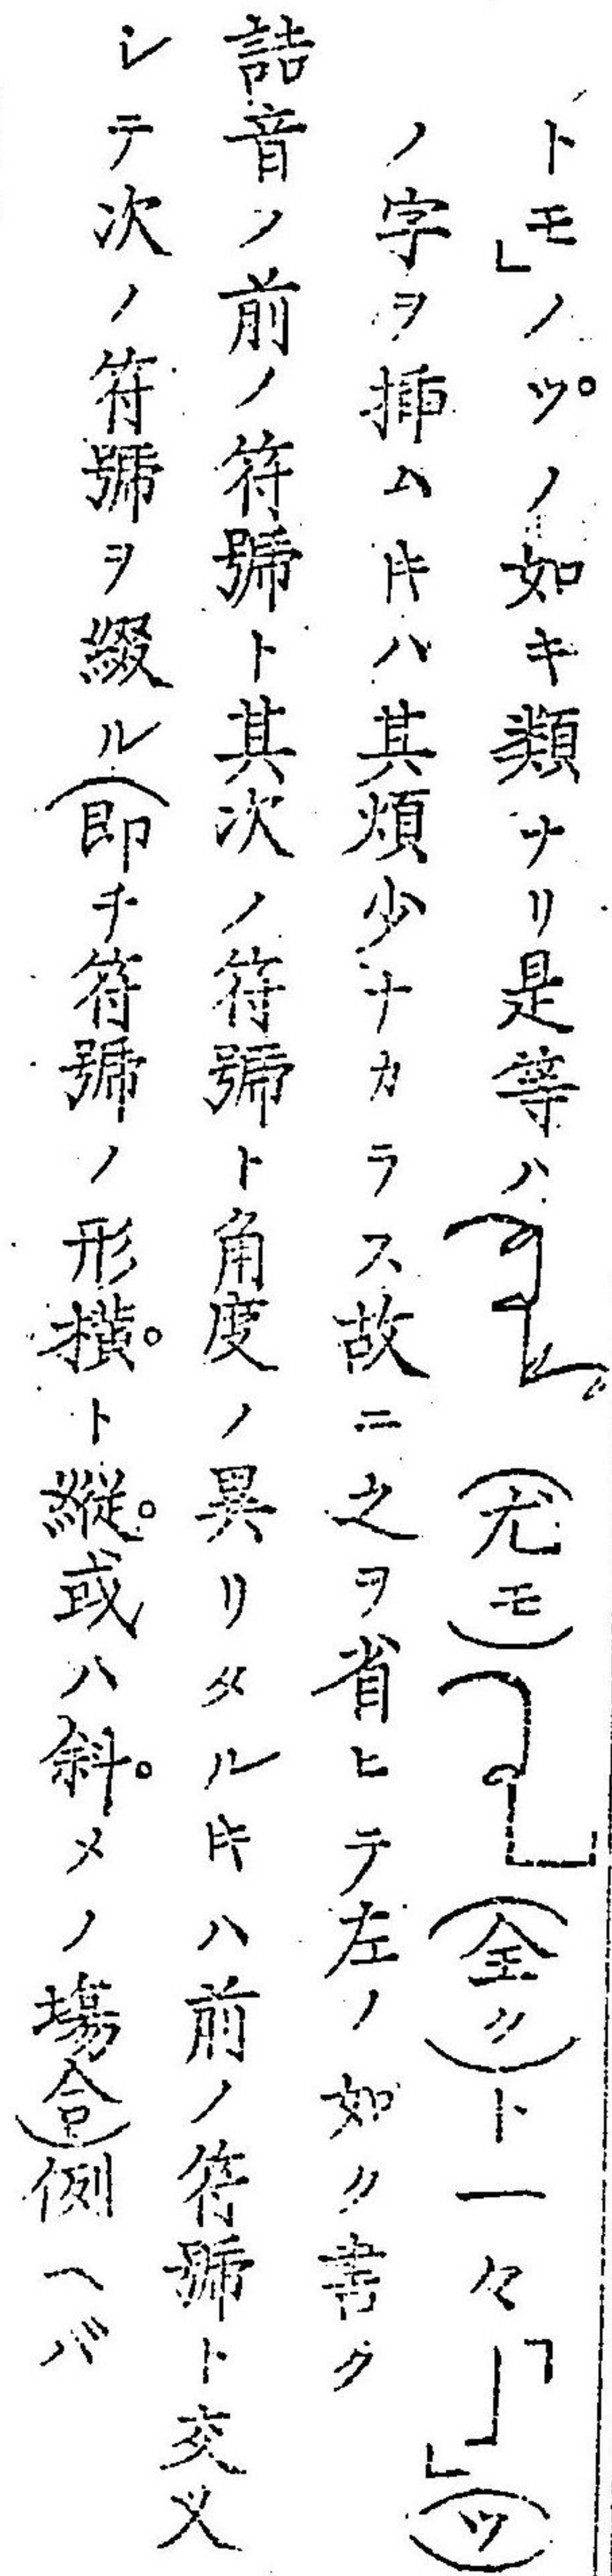 トモ」ノツノ如キ類ナリ是等ハ(尤モ)(全ク)ト一々「」(ツ)
ノ字ヲ挿ム𪜈ハ其煩少ナカラス故ニ之ヲ省ヒテ左ノ如ク書ク
詰音ノ前ノ符號ト其次ノ符號ト角度ノ異リタル𪜈ハ前ノ符號ト交叉
シテ次ノ符號ヲ綴ル(即チ符號ノ形横ト縦或ハ斜メノ塲合)例ヘバ